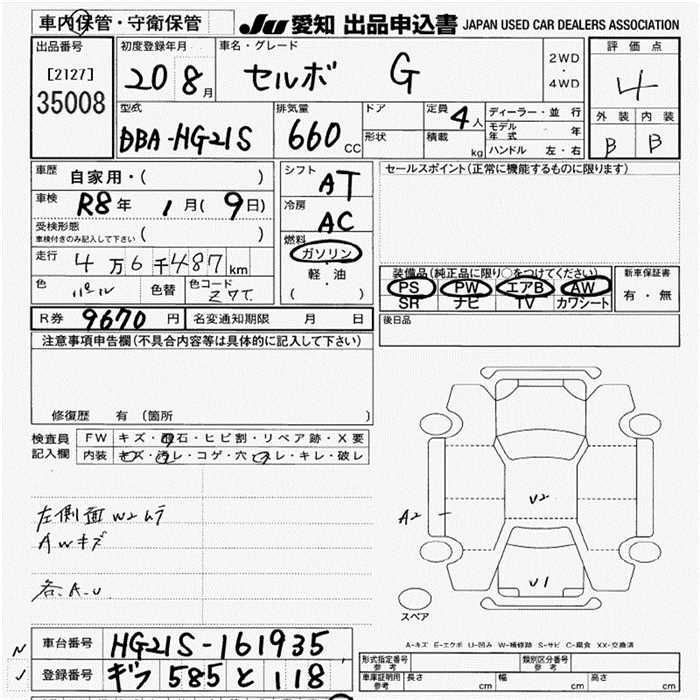 車内保管・守衛保管
JU 愛知 出品申込書 JAPAN USED CAR DEALERS ASSOCIATION
出品番号
[2127]
35008
初度登録年月
20 8月
車名・グレード
セルボ G
2WD
・
4WD
評価点
4
外装 内装
B B
型式
DBA-HG21S
排気量
660 CC
ドア
形状
定員 4人
積載 kg
ディーラー・並行
モデル年式 年
ハンドル 左・右
車歴
自家用・( )
車検
R8年 1月(9日)
受検形態
車検付きのみ記入して下さい ( )
走行
4万6千487km
色 パール 色替 色コード Z7T
シフト AT
冷房 AC
燃料
ガソリン
軽・油
( )
セールスポイント(正常に機能するものに限ります)
装備品(純正品に限り○をつけてください)
PS PW エアB AW
SR ナビ TV カワシート
新車保証書
有・無
後日品
R券 9670円 名変通知期限 月 日
注意事項申告欄(不具合内容等は具体的に記入して下さい)
修復歴 有 (箇所 )
検査員記入欄
FW キズ・飛石・ヒビ割・リペア跡・X要
内装 キズ・汚レ・コゲ・穴・スレ・キレ・破レ
左側面W2ムラ
AWキズ
各A.U
A2
U2
U1
スペア
A-キズ E-エクボ U-凹み W-補修跡 S-サビ C-腐食 XX-交換済
車台番号 HG21S-161935
登録番号 ギフ 585 と 118
型式指定番号 参考
類別区分番号 参考
車庫証明用 参考 長さ cm 幅 cm 高さ cm